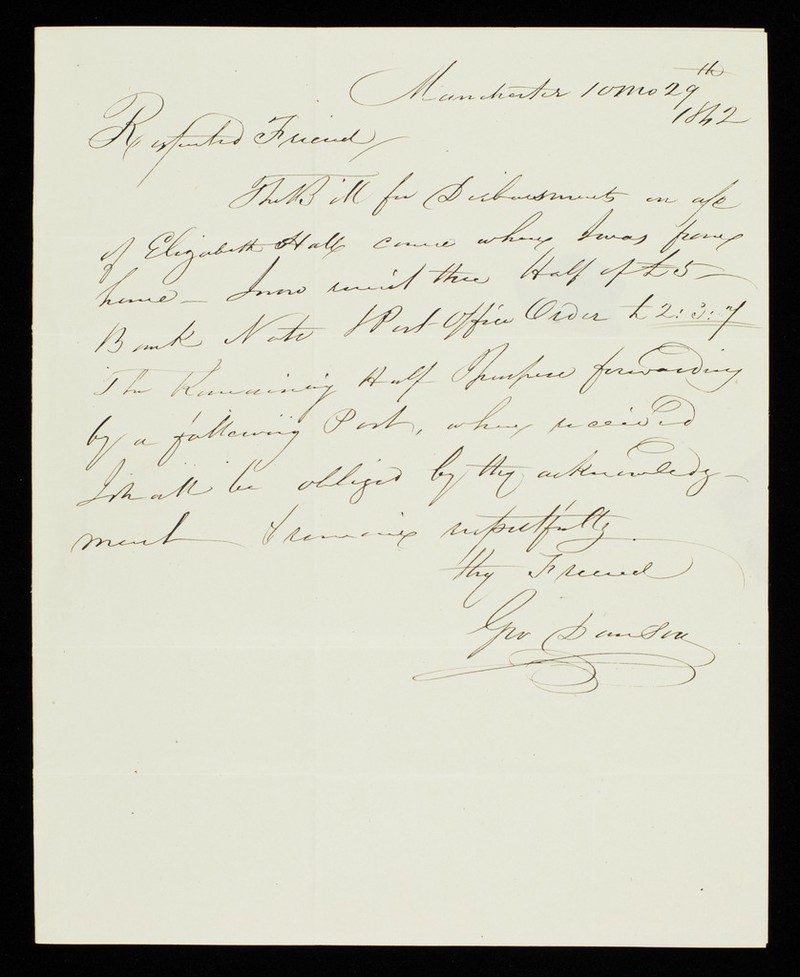 Manchester 10mo 29th
1842
Respected Friend
The Bill for Disbursments on a/c
of Elizabeth Hall came when I was from
home – I now remit thee Half of £5 –
Bank Note & Post Office Order £2:3:7
The Remaining Half I purpose forwarding
by a following Post, when received
I shall be obliged by thy acknowledg-
ment & remain respectfully
thy Friend
Geo Danson